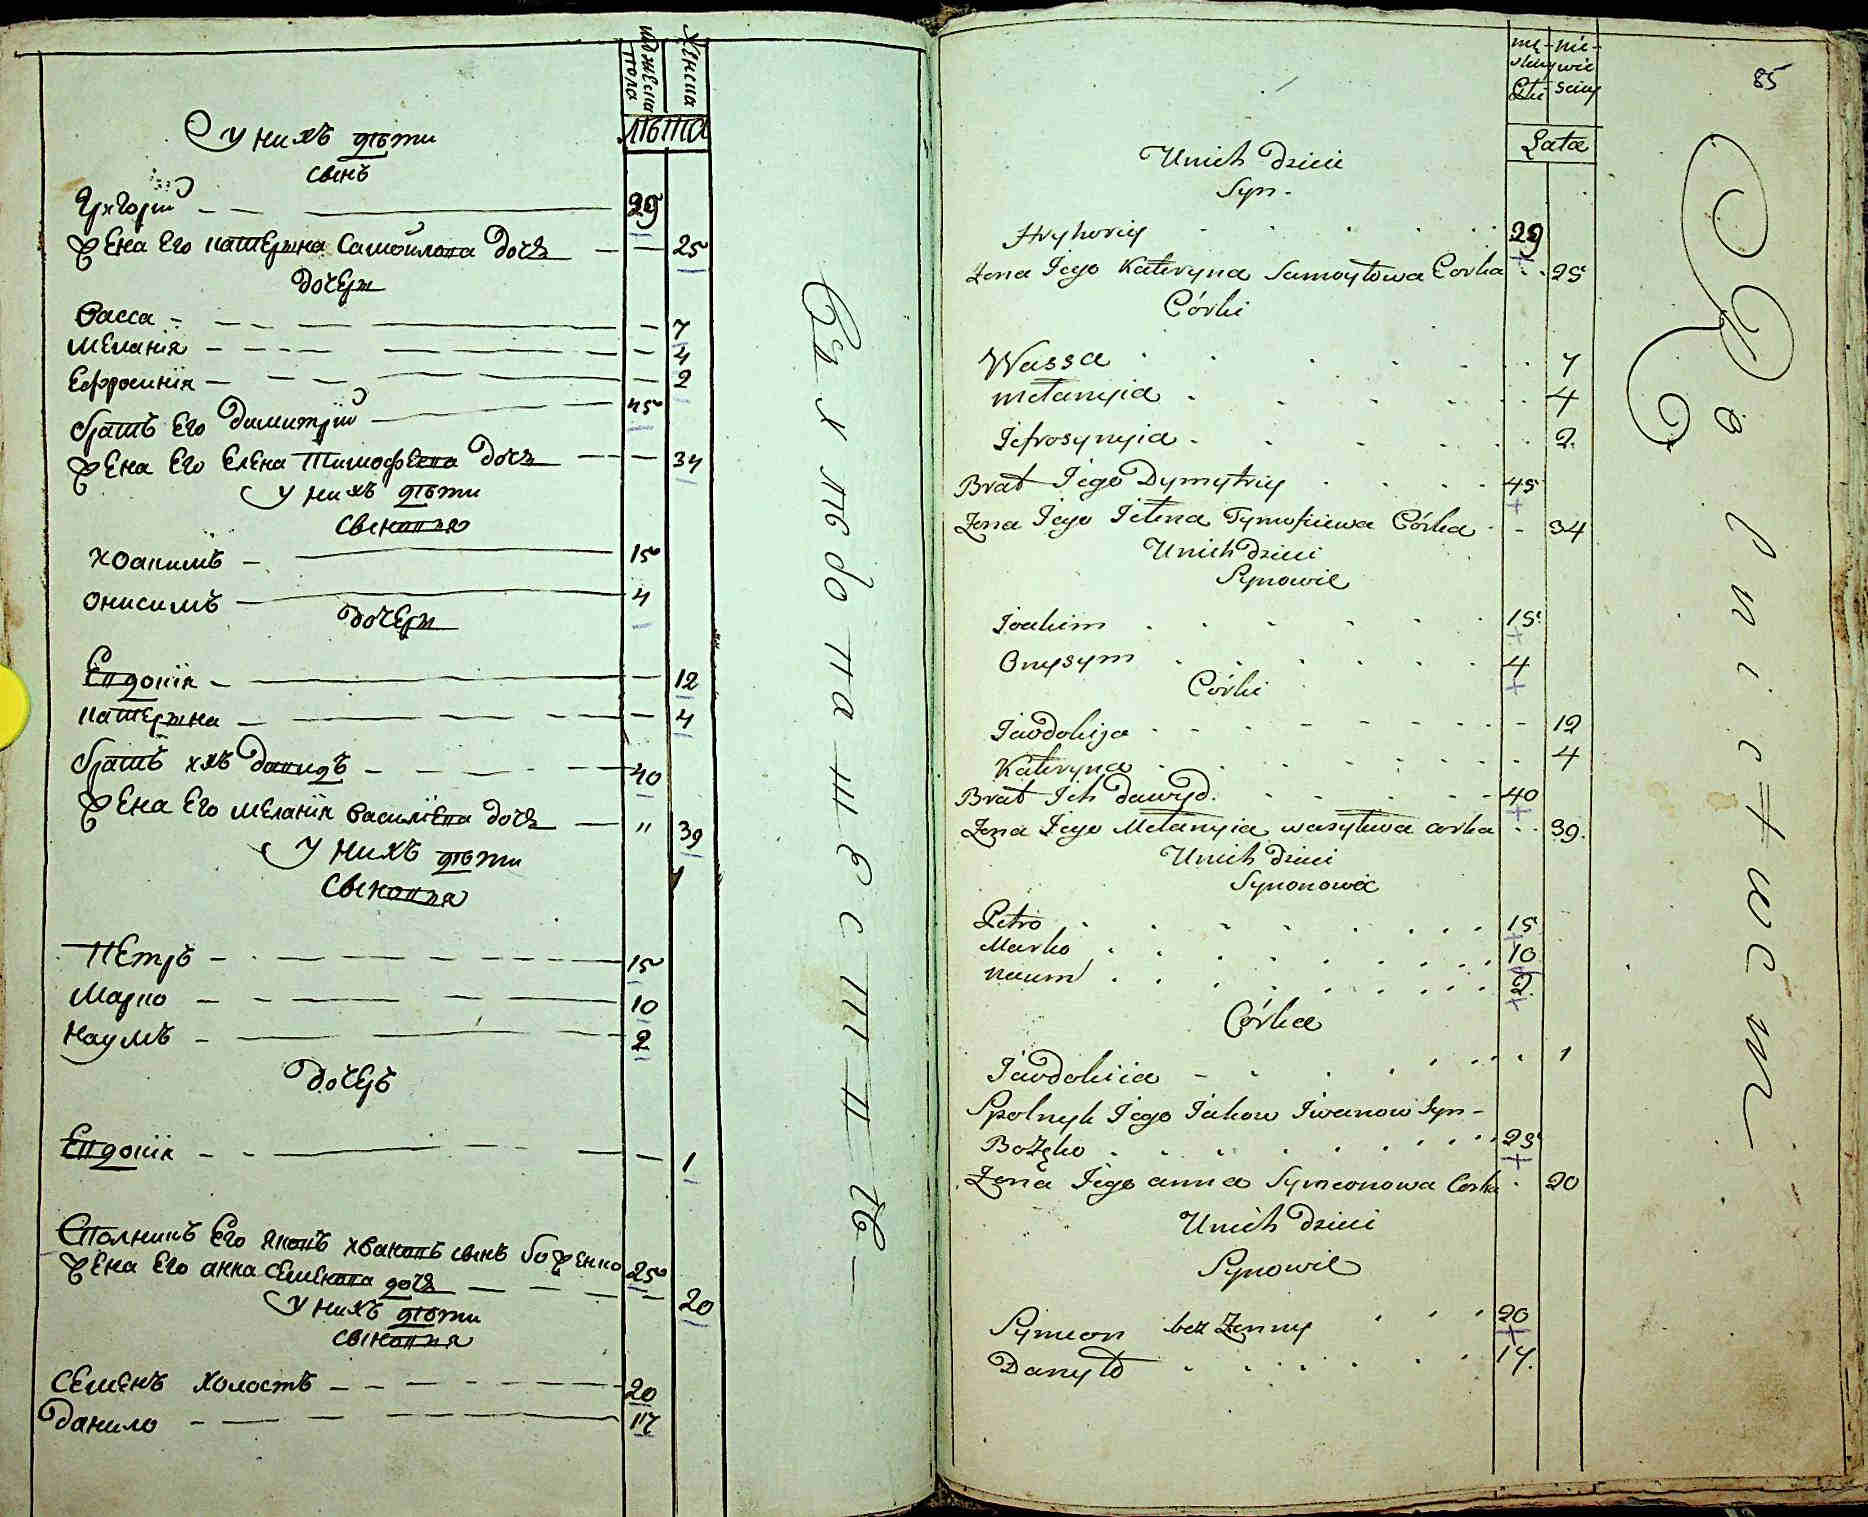 мужеска пола
женска
лѣта
У нихъ дѣти
сынъ
Григорій 29
Жена его катерина Самойлова дочь 25
дочери
Васса 7
меланія 4
Ефросинія 2
братъ его димитрій 45
Жена его Елена Тимофеева дочь 34
У нихъ дѣти
сыновья
Иоакимъ 15
онисимъ 4
дочери
Евдокія 12
катерина 4
братъ ихъ давидъ 40
Жена его меланія василіева дочь " 39
У нихъ дѣти
сыновья
Петръ 15
Марко 10
Наумъ 2
дочеръ
Евдокія 1
Сполникъ его яковъ ивановъ сынъ боженко 25
Жена его анна семенова дочь 20
У нихъ дѣти
сыновья
Семенъ холостъ 20
данило 17
85
mę- nie-
skiey wie
Płci sciey
Łata
Unich dzieci
Syn
Hryhoriy 29
Zona Jego Kateryna Samoyłowa Corka 25
Córki
Wassa 7
mełanyia 4
Jefrosynyia 2
Brat Jego Dymytriy 45
Zona Jego Jełena Tymofiiewa Córka 34
Unich dzieci
Synowie
Joakim 15
Onysym 4
Córki
Jawdokija 12
Kateryna 4
Brat Ich dawyd 40
Zona Jego Mełanyia wasylewa corka 39
Unich dzieci
Synonowie
Petro 15
Marko 10
naum 2
Córka
Jawdokiia 1
Spolnyk Jego Jakow Iwanow Syn
Bożęko 25
Zona Jego anna Symeonowa Corka 20
Unich dzieci
Synowie
Symeon bez Zenny 20
Danyło 17